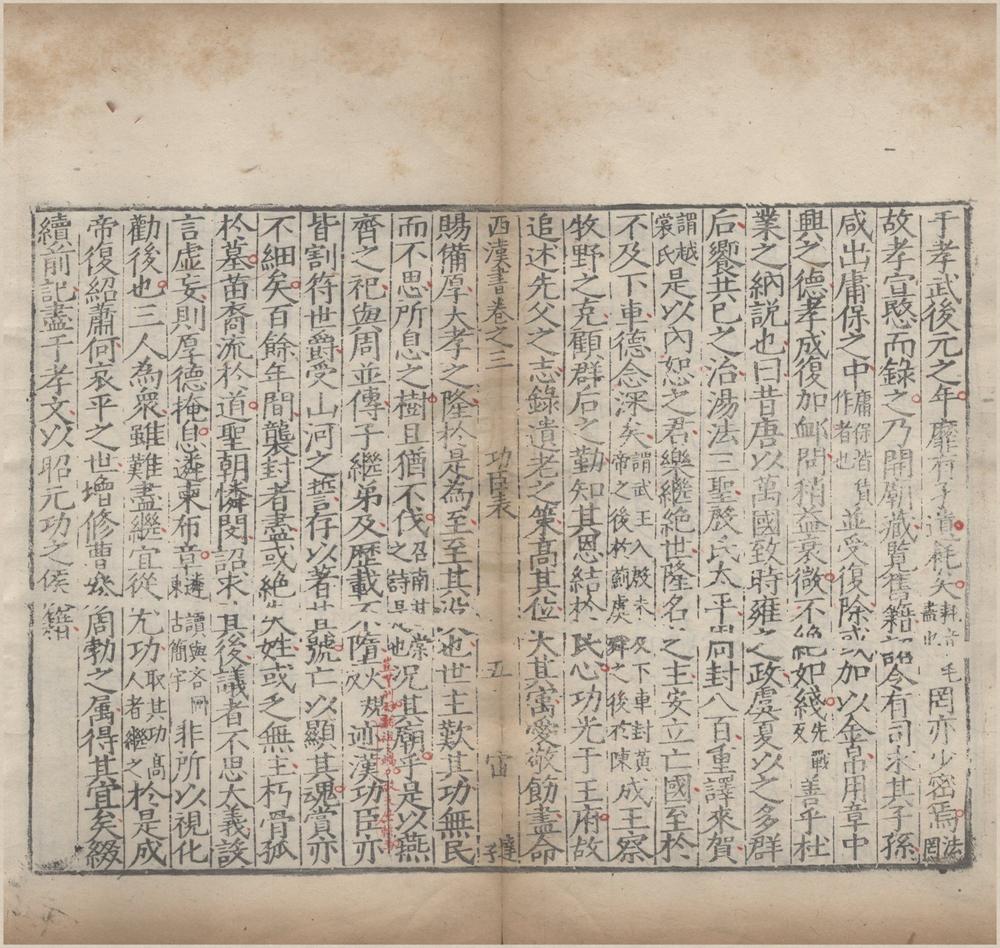 于孝武後元之年靡有孑遺耗矣耗音毛盡也罔亦少密焉法罔
故孝宣愍而錄之乃開廟藏覽舊籍詔令有司求其子孫
咸出庸保之中庸保皆賃作者也並受復除或加以金帛用章中
興之德孝成復加卹問稍益衰微不絕如綫先戰反善乎杜
業之納說也曰昔唐以萬國致時雍之政虞夏以之多群
后饗共己之治湯法三聖殷氏太平周封八百重譯來賀
謂越裳氏是以內恕之君樂繼絕世隆名之主安立亡國至於
不及下車德念深矣謂武王入殷未及下車封黃帝之後於薊虞舜之後於陳成王察
牧野之克顧群后之勤知其恩結於民心功光于王府故
追述先父之志錄遺老之策高其位大其寓愛敬飭盡命
西漢書卷之三 功臣表 五
賜備厚大孝之隆於是為至至其沒也世主歎其功無民
而不思所息之樹且猶不伐召南甘棠之詩是也況其廟乎是以燕
齊之祀與周並傳子繼弟及歷載不隋火規反述漢功臣亦
皆割符世爵受山河之誓存以著其號亡以顯其魂賞亦
不細矣百餘年間襲封者盡或絕失姓或乏無主朽骨孤
於墓苗裔流於道聖朝憐閔詔求其後議者不思大義設
言虛妄則厚德掩息遴柬布章遴讀與吝同柬古簡字非所以視化
勸後也三人為眾雖難盡繼宜從尤功取其功高人者繼之於是成
帝復紹蕭何哀平之世增修曹參周勃之屬得其宜矣綴
續前記盡于孝文以昭元功之侯籍